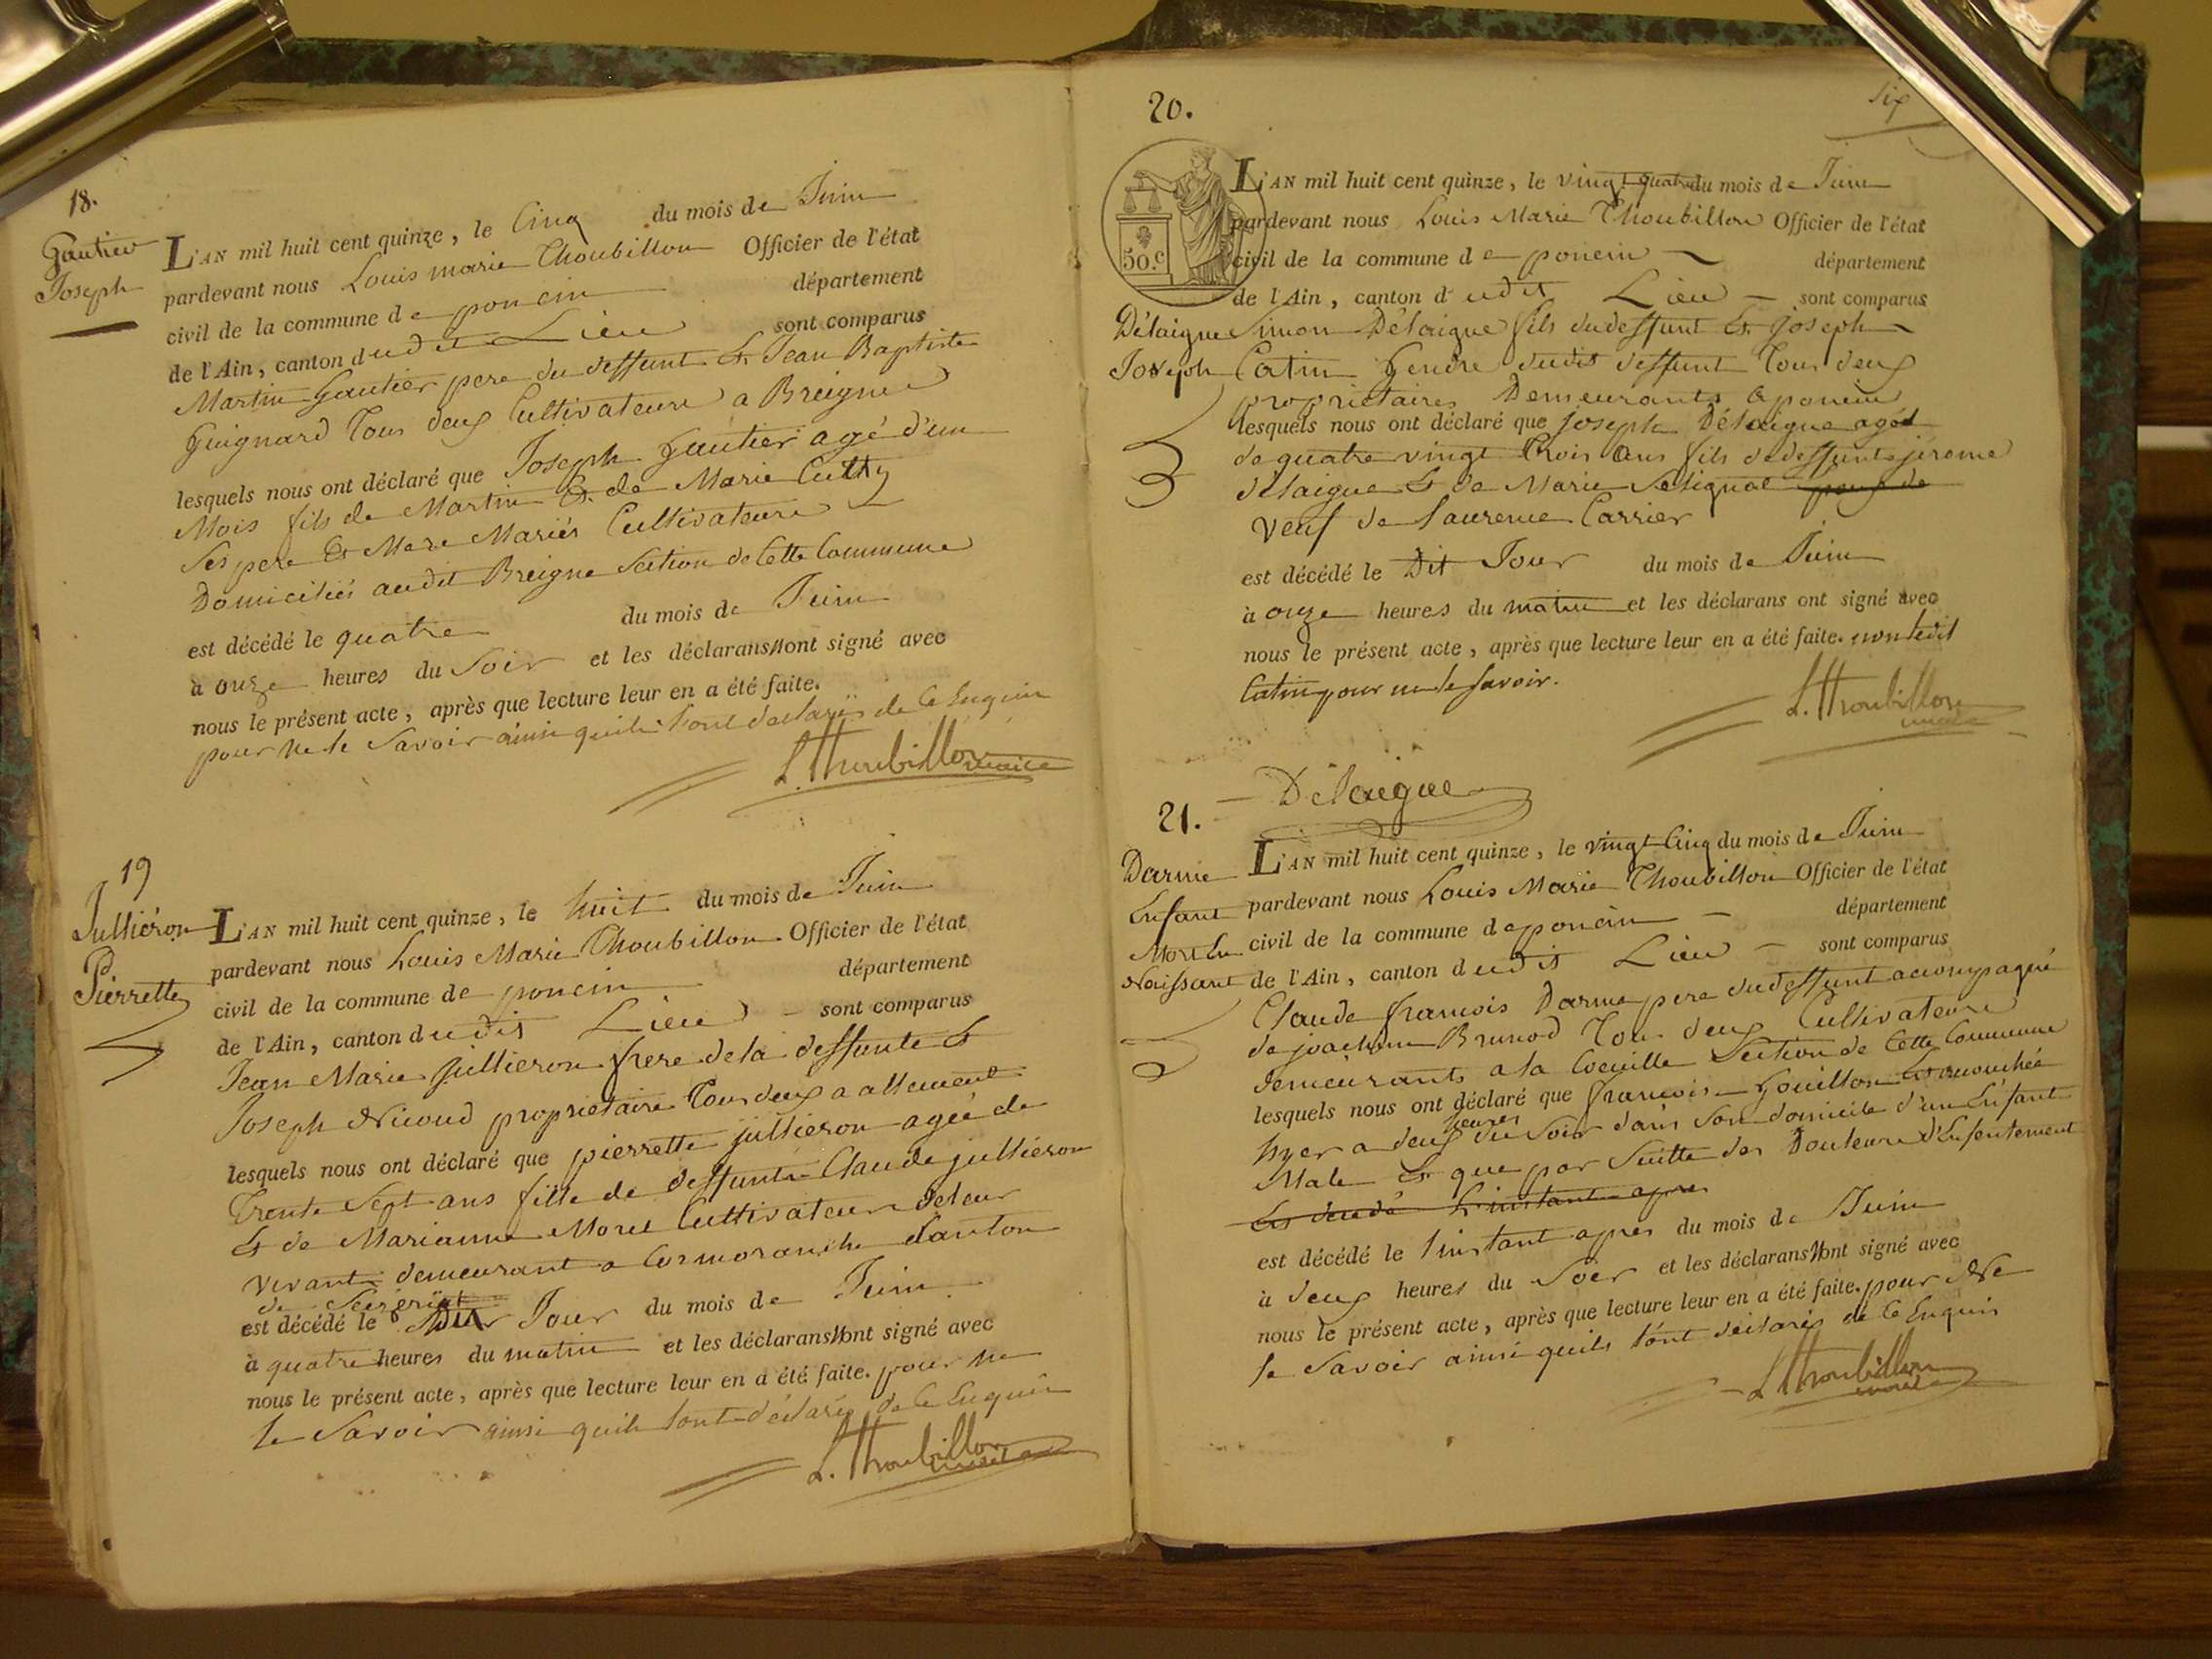 18.
Gautier
Joseph
L'AN mil huit cent quinze, le Cinq du mois de Juin
pardevant nous Louis marie Thoubillon Officier de l'état
civil de la commune de poncin département
de l'Ain, canton dudit Lieu sont comparus
Martin Gautier pere du deffunt Et Jean Baptiste
Guignard Tous deux Cultivateurs a Breigne
lesquels nous ont déclaré que Joseph Gautier agé d'un
Mois fils de Martin Et de Marie Cutty
Ses pere Et Mere Mariés Cultivateurs
Domiciliés audit Breigne Section de Cette Commune
est décédé le quatre du mois de Juin
à onze heures du Soir et les déclarans n'ont signé avec
nous le présent acte, après que lecture leur en a été faite.
pour ne le Savoir ainsi quils l'ont déclarés de Ce Enquis
L. Thoubillon maire
19
Jullièron
Pierrette
L'AN mil huit cent quinze, le huit du mois de Juin
pardevant nous Louis Marie Thoubillon Officier de l'état
civil de la commune de poncin département
de l'Ain, canton dudit Lieu sont comparus
Jean Marie jullieron frere de la deffunte Et
Joseph Nicoud proprietaire Tous deux a allement
lesquels nous ont déclaré que pierrette jullieron agée de
Trente Sept ans fille de deffunt Claude jullièron
Et de Marianne Morel Cultivateur de leur
vivant demeurant a Cormoranche Canton
de
est décédé le Dit Jour du mois de Juin
à quatre heures du matin et les déclarans n'ont signé avec
nous le présent acte, après que lecture leur en a été faite. pour ne
le Savoir ainsi quils l'ont déclarés de Ce Enquis
L. Thoubillon maire
20.
Six
50.c
L'AN mil huit cent quinze, le vingt quatre du mois de Juin
pardevant nous Louis Marie Thoubillon Officier de l'état
civil de la commune de poncin département
de l'Ain, canton dudit Lieu sont comparus
Délaigue
Joseph
Simon Délaigue fils du deffunt Et Joseph
Catin Gendre dudit deffunt Tous deux
proprietaires Demeurants a poncin
lesquels nous ont déclaré que joseph Délaigue agé
de quatre vingt Trois ans fils de deffunts jérome
délaigue Et de Marie
veuf de Laurence Carrier
est décédé le Dit Jour du mois de Juin
à onze heures du matin et les déclarans ont signé avec
nous le présent acte, après que lecture leur en a été faite. non ledit
Catin pour ne le savoir.
L. Thoubillon maire
Délaigue
21.
Darme
Enfant
Mort En
Naissant
L'AN mil huit cent quinze, le vingt Cinq du mois de Juin
pardevant nous Louis Marie Thoubillon Officier de l'état
civil de la commune de poncin département
de l'Ain, canton dudit Lieu sont comparus
Claude francois Darme pere du deffunt accompagné
de joachim Brunod Tous deux Cultivateurs
demeurants a la Coeuille Section de Cette Commune
lesquels nous ont déclaré que francoise Gouillon Est accouchée
hyer a deux heures du Soir dans Son domicile d'un Enfant
Male Et que par Suitte des Douleurs d'Enfentement
Est decedé L'instant apres
est décédé le l'instant apres du mois de Juin
à deux heures du Soir et les déclarans n'ont signé avec
nous le présent acte, après que lecture leur en a été faite. pour Ne
le Savoir ainsi quils l'ont déclarés de Ce Enquis
L. Thoubillon maire